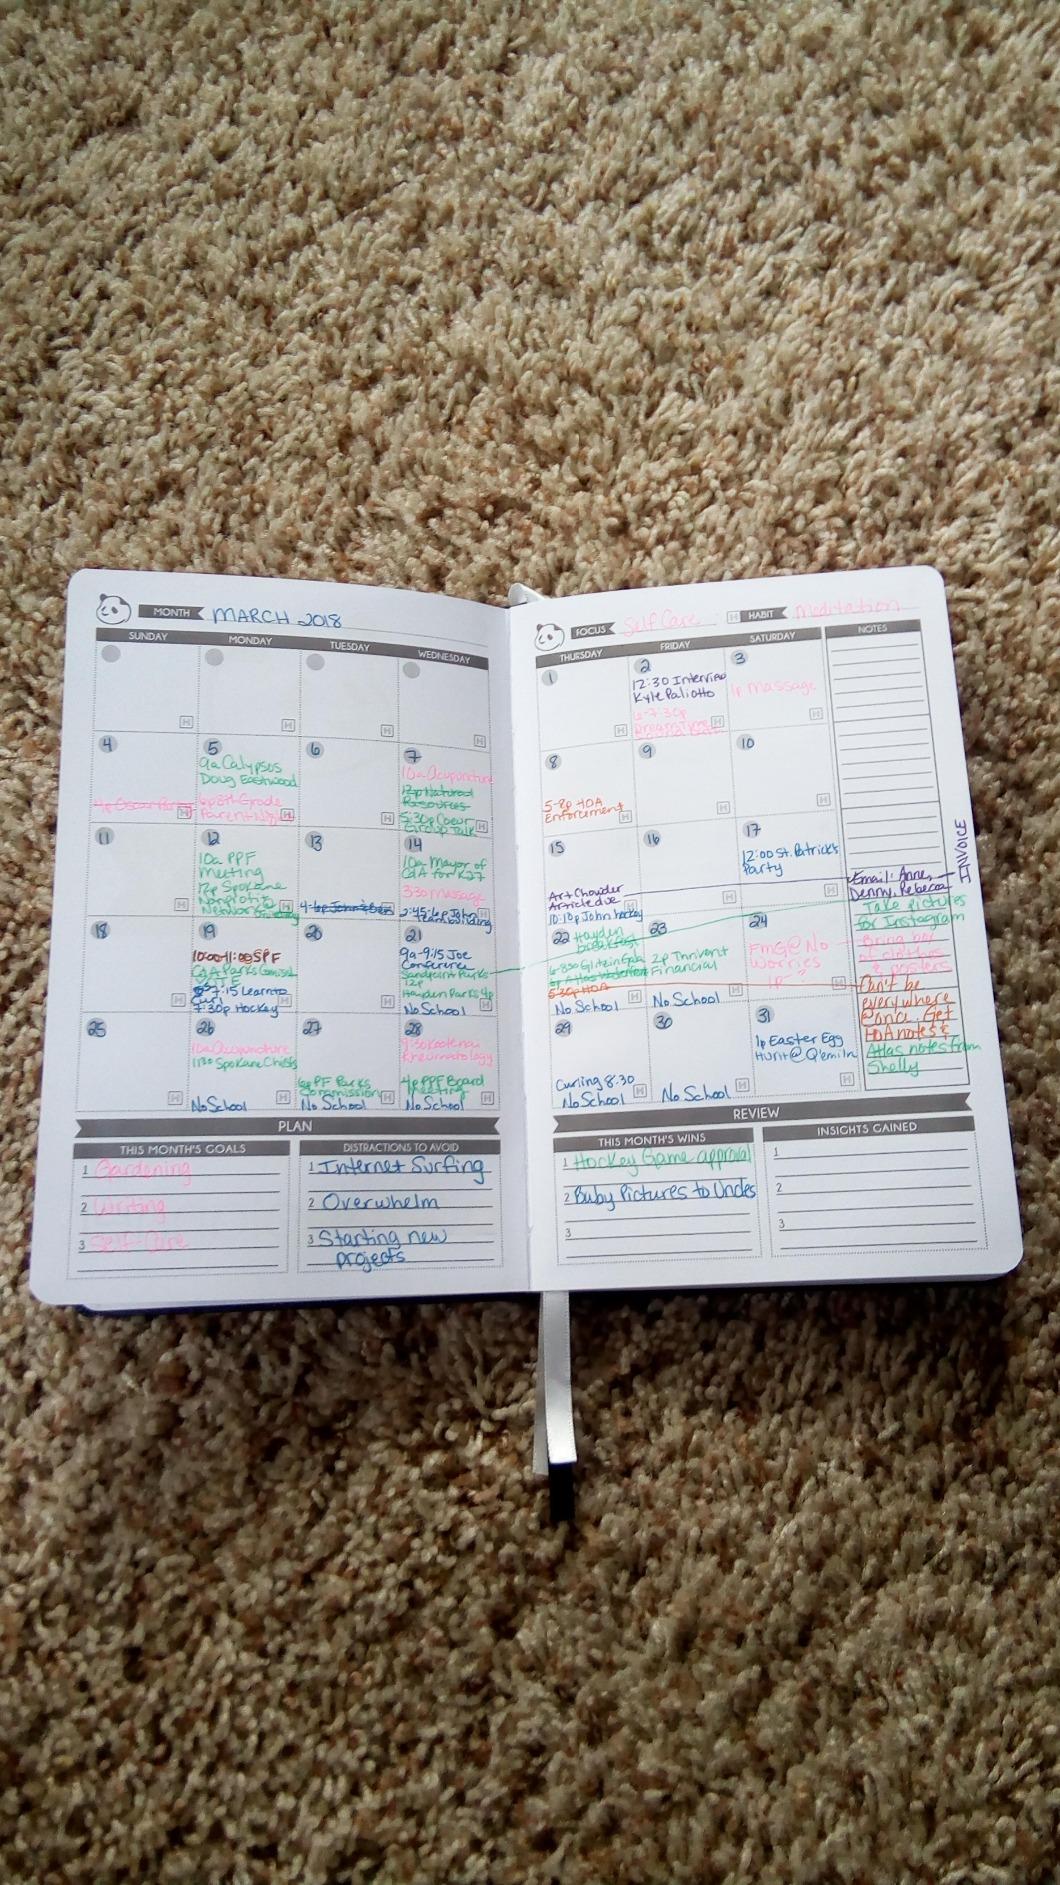 MONTH MARCH 2018
SUNDAY MONDAY TUESDAY WEDNESDAY
4
4p Oscar Party
5
9a Calypsos
Doug Eastwood
6p 8th Grade
Parent Night
6
7
10a Acupuncture
12p Natural
Resources
5:30p Coeur
Group Talk
11
12
10a PPF
Meeting
12p Spokane
Nonprofit
Network
13
4-6p John's Ben
14
10a Mayor of
CdA for K27
3:30 massage
2:45-6p John
Teambuilding
18
19
10:00-11:00 SPF
CdA Parks Comission
7:15 Learn to
Curl
7:30p Hockey
20
21
9a-9:15 Joe
Conference
Sandpoint Parks
12p
Hayden Parks 4p
No School
25
26
10a Acupuncture
11:30 Spokane Chiefs
No School
27
6p PF Parks
Commission
No School
28
9:30 Kootenai
Rheumatology
4p PPF Board
Meeting
No School
PLAN
THIS MONTH'S GOALS
1 Gardening
2 Writing
3 Self-Care
DISTRACTIONS TO AVOID
1 Internet Surfing
2 Overwhelm
3 Starting new
projects
FOCUS Self Care H HABIT Meditation
THURSDAY FRIDAY SATURDAY NOTES
1
2
12:30 Interview
Kyle Paliotto
6-7:30p
Dream Time
3
1p Massage
8
5-8p HOA
Enforcement
9
10
15
Art Chowder
Article due
10:10p John hockey
16
17
12:00 St. Patrick's
Party
22 Hayden
Breakfast
6-8:30 Glitzin Gala
6p Atlas Waterfront
5:30p HOA
No School
23
2p Thrivent
Financial
No School
24
FMG @ No
Worries
1p ?
29
Curling 8:30
No School
30
No School
31
1p Easter Egg
Hunt @ Q'emiln
Email: Anne,
Denny, Rebecca
INVOICE
Take pictures
for Instagram
Bring box
of clothes
& posters
Can't be
everywhere
@ once. Get
HOA notes &
Atlas notes from
Shelly
REVIEW
THIS MONTH'S WINS
1 Hockey Game approval
2 Baby Pictures to Uncles
3
INSIGHTS GAINED
1
2
3